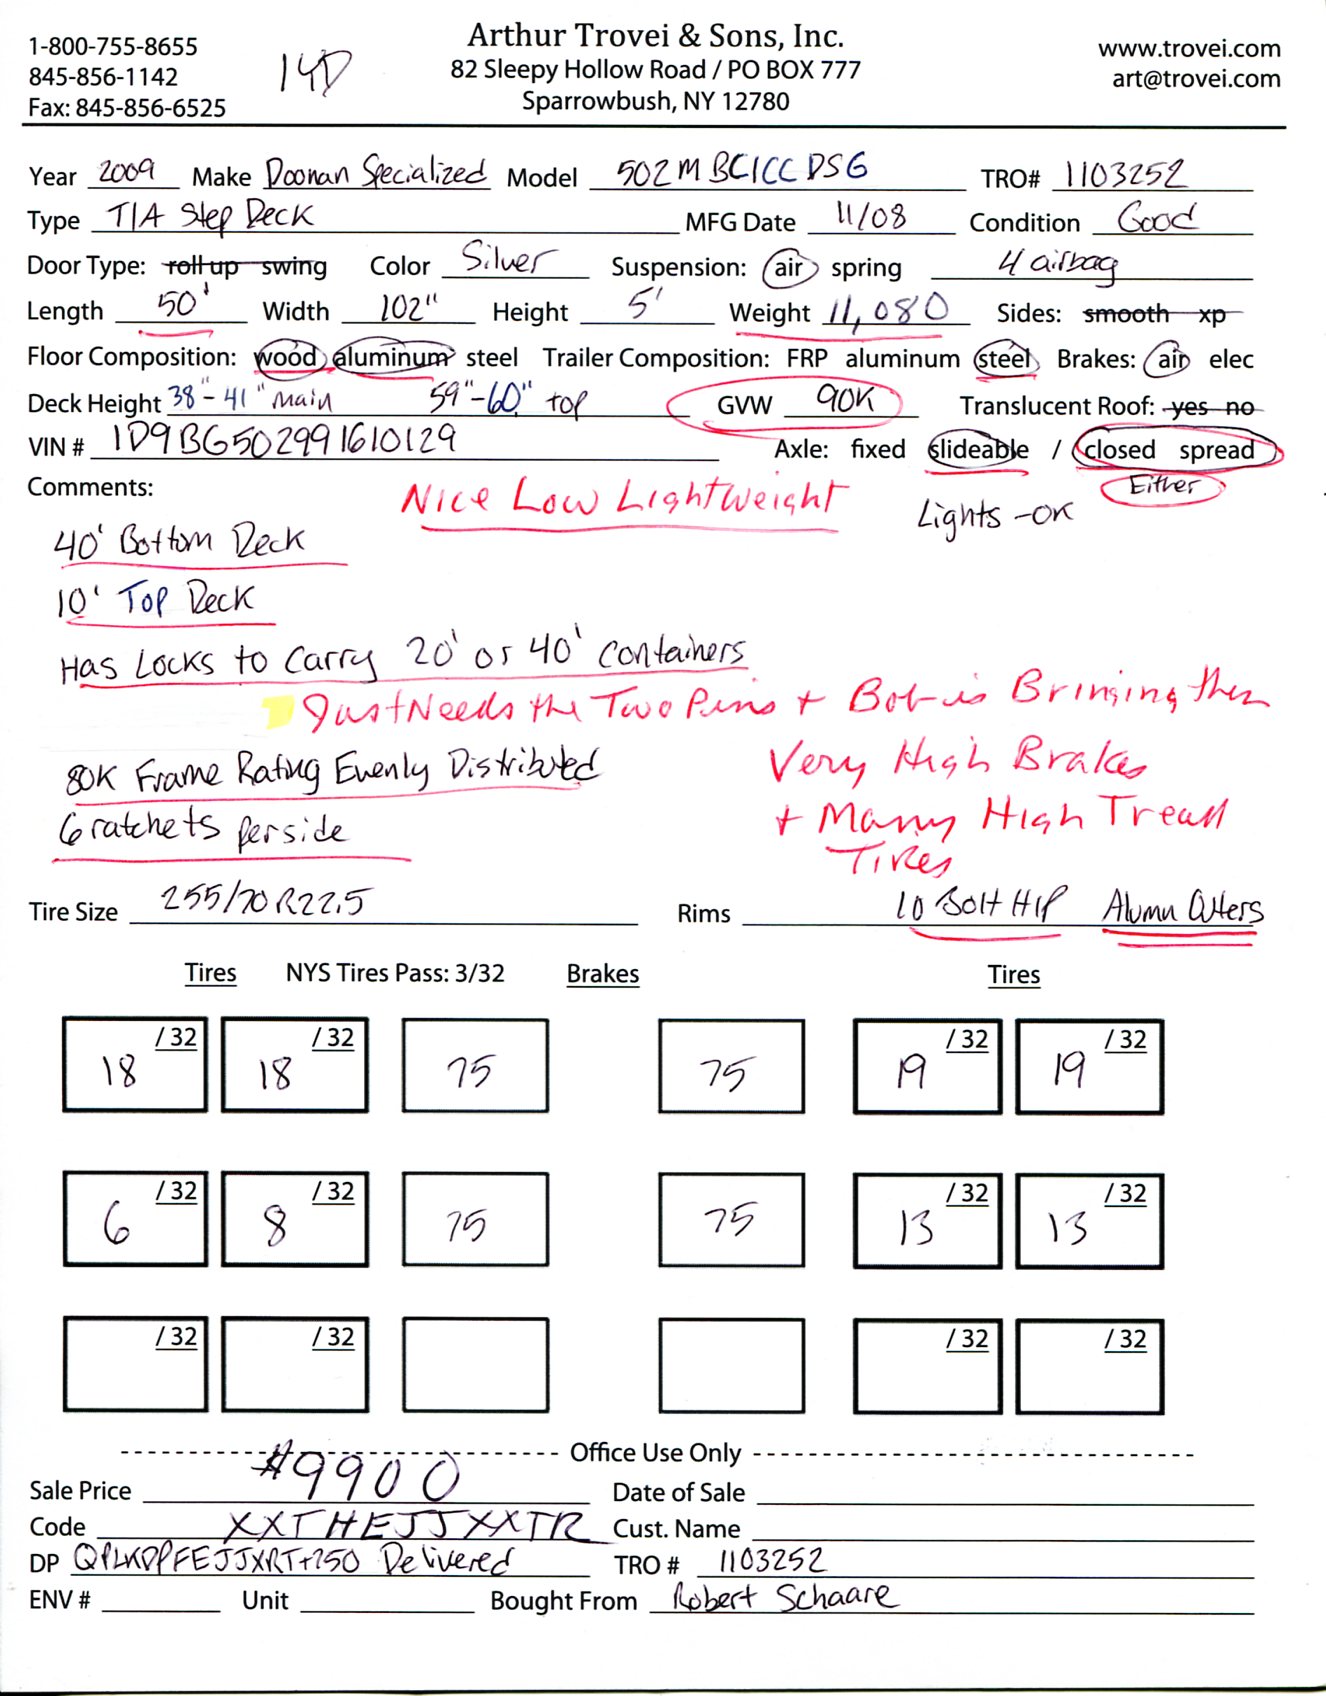 Arthur Trovei & Sons, Inc.
1-800-755-8655
82 Sleepy Hollow Road / PO BOX 777
www.trovei.com
845-856-1142
14D
art@trovei.com
Fax: 845-856-6525
Sparrowbush, NY 12780
Year 2009 Make Doonan Specialized Model 502MBCICCDSG TRO# 1103252
Type T/A Step Deck MFG Date 11/08 Condition Good
Door Type: roll up swing Color Silver Suspension: air spring 4 airbag
Length 50' Width 102" Height 5' Weight 11,080 Sides: smooth xp
Floor Composition: wood aluminum steel Trailer Composition: FRP aluminum steel Brakes: air elec
Deck Height 38"-41" main 59"-60" top GVW 90K Translucent Roof: yes no
VIN # 1D9BG502991610129 Axle: fixed slideable / closed spread
Either
Comments: Nice Low Lightweight
Lights -OK
40' Bottom Deck
10' Top Deck
Has Locks to Carry 20' or 40' Containers
Just Needs the Two Pins + Bob is Bringing them
80K Frame Rating Evenly Distributed
Very High Brakes
6 ratchets per side
+ Many High Tread
Tires
Tire Size 255/70R22.5 Rims 10 Bolt H/P Alumn Outers
Tires NYS Tires Pass: 3/32 Brakes Tires
18 /32 18 /32 75 75 19 /32 19 /32
6 /32 8 /32 75 75 13 /32 13 /32
/32 /32 /32 /32
Office Use Only
Sale Price $9900 Date of Sale
Code XXTHEJJXXTR Cust. Name
DP QPLKDPFEJJXRT+750 Delivered TRO # 1103252
ENV # Unit Bought From Robert Schaare